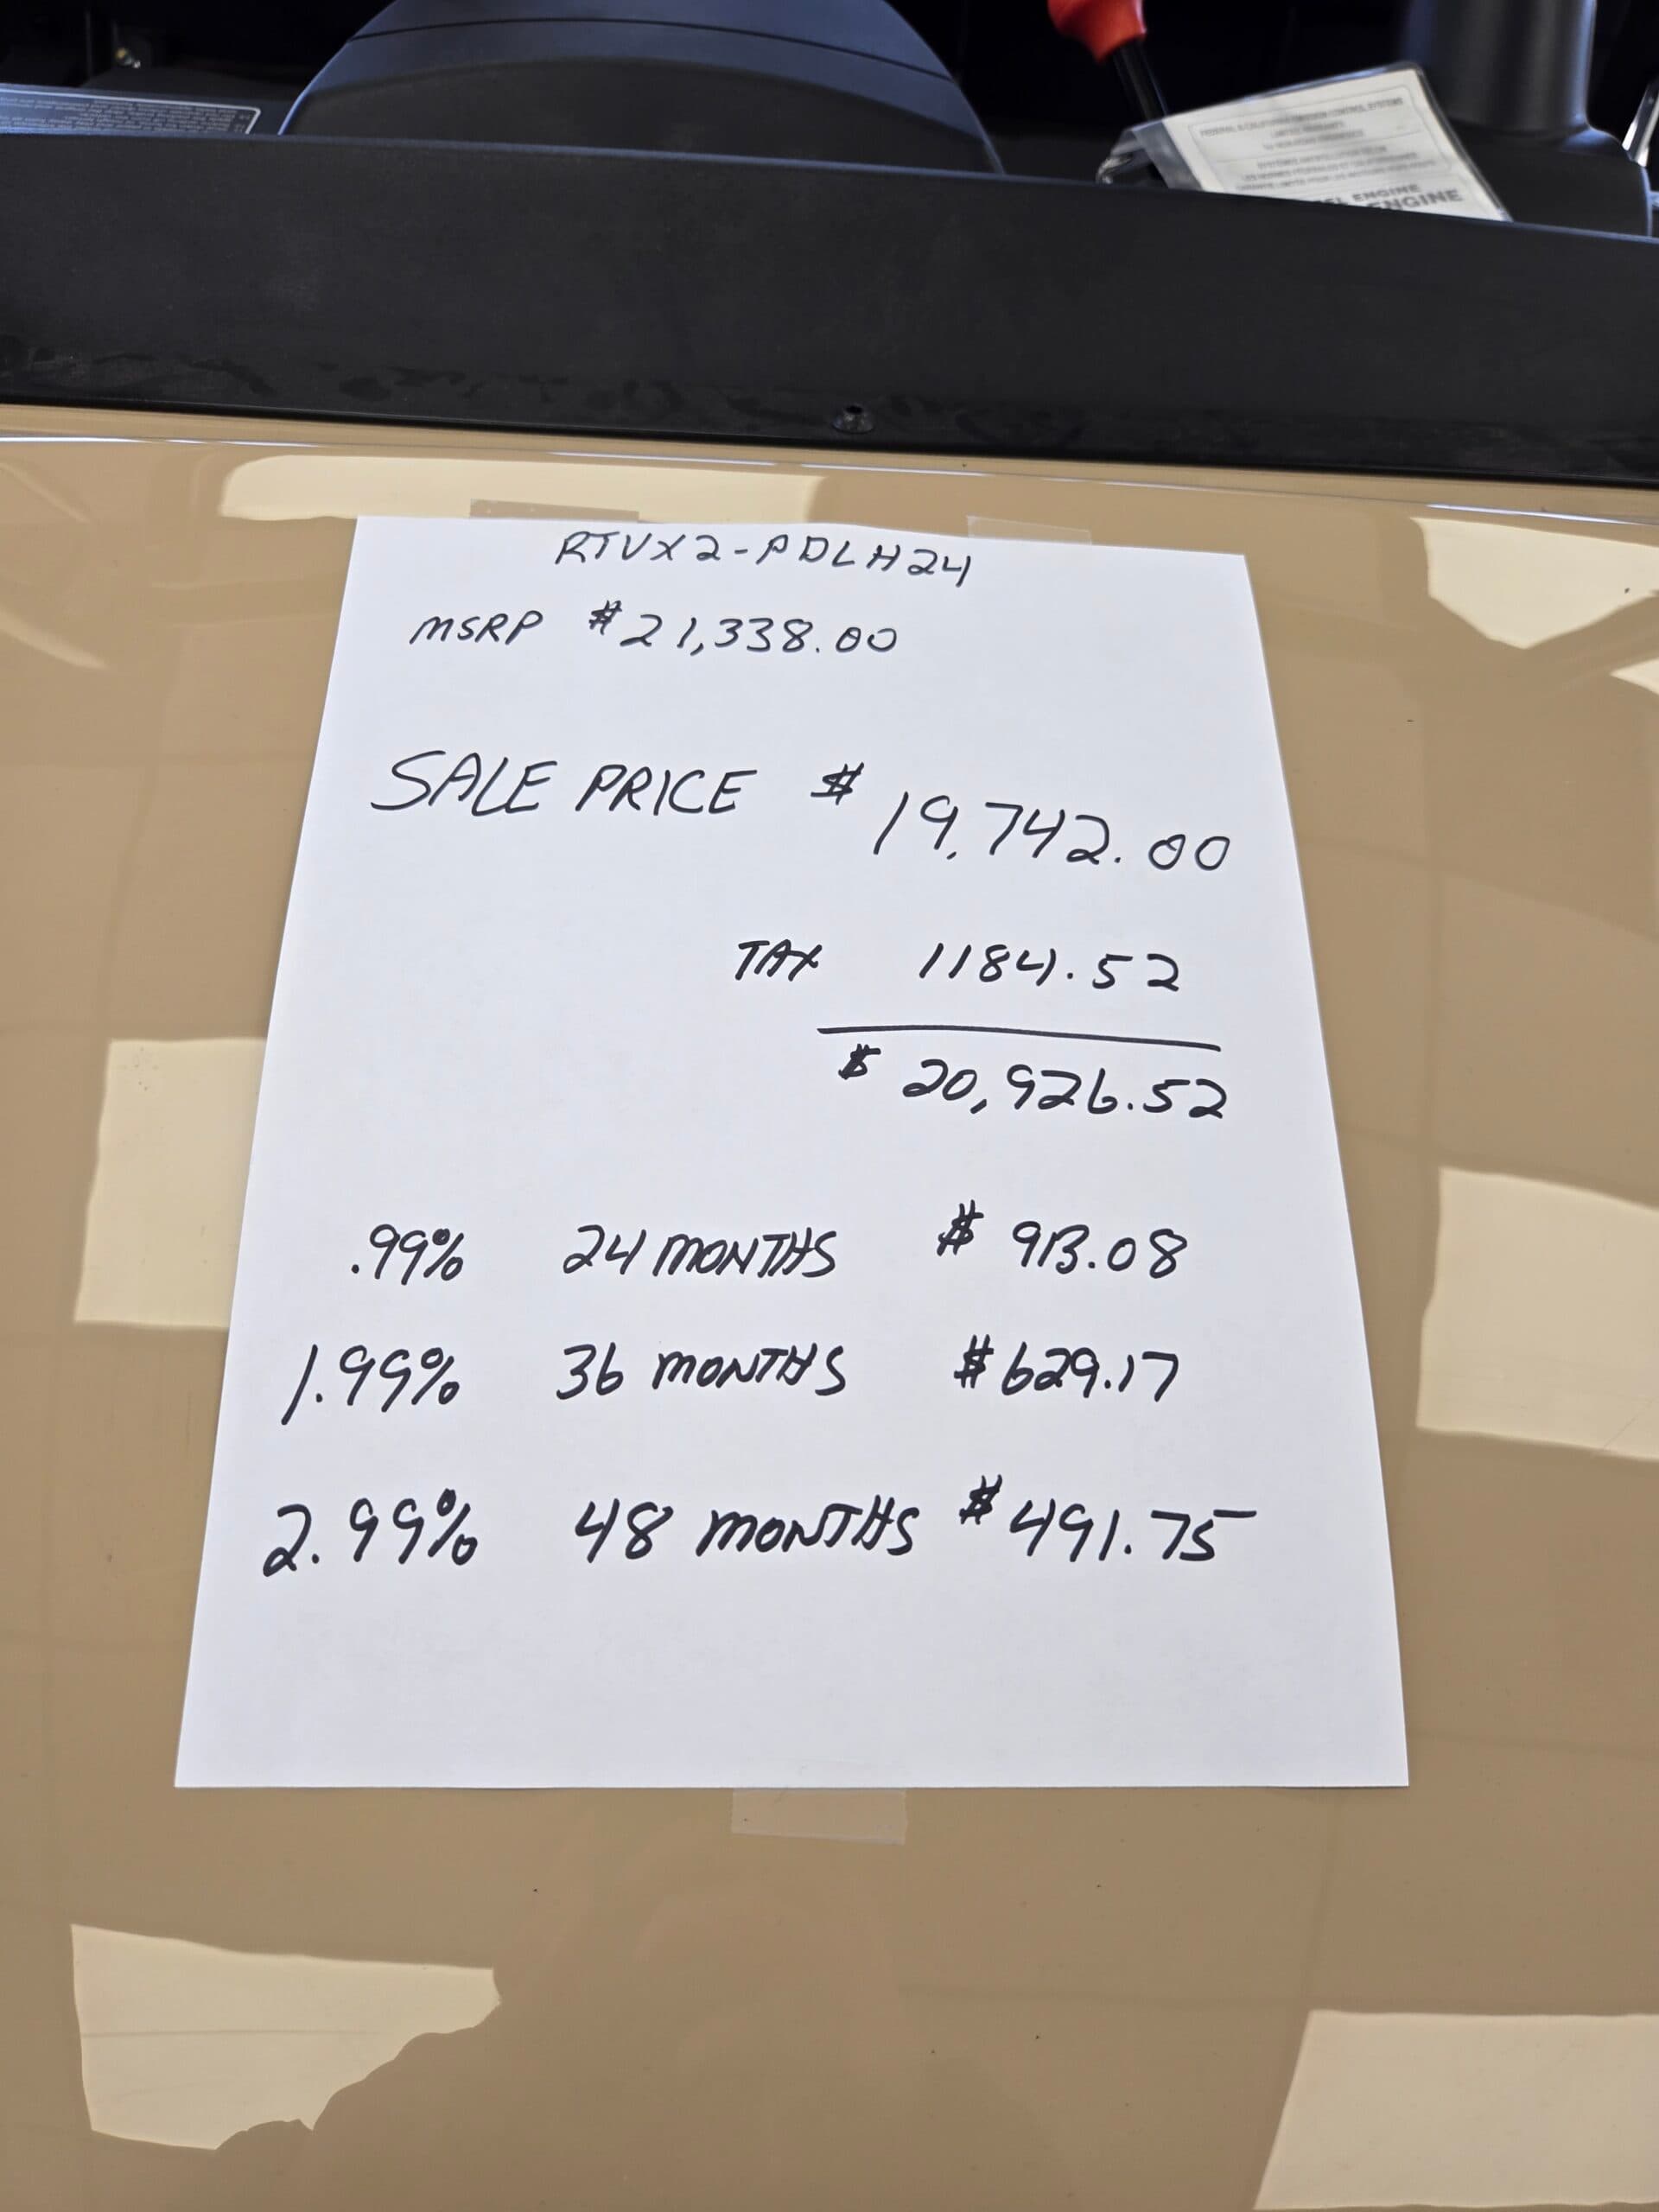 FEDERAL & CALIFORNIA EMISSION CONTROL SYSTEMS
LIMITED WARRANTY
ENGINE
ENGINE
RTVX2-PDLH24
MSRP $21,338.00
SALE PRICE $19,742.00
TAX 1184.52
$20,926.52
.99% 24 MONTHS $913.08
1.99% 36 MONTHS $629.17
2.99% 48 MONTHS $491.75